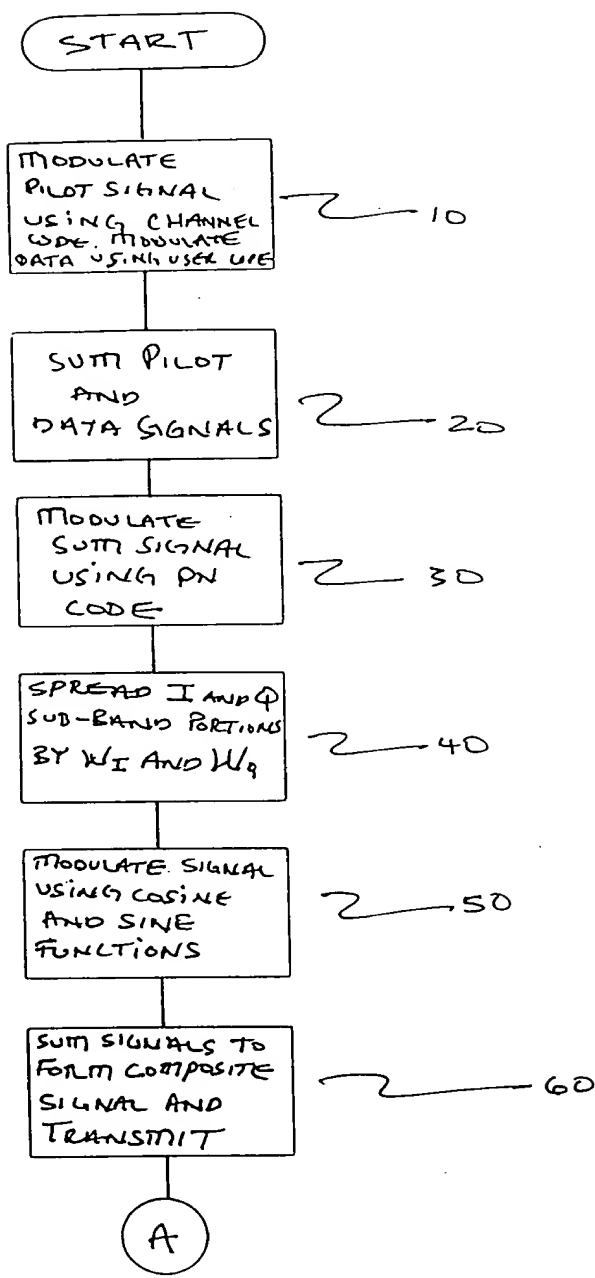 START
MODULATE
PILOT SIGNAL
USING CHANNEL
CODE. MODULATE
DATA USING USER CODE
10
SUM PILOT
AND
DATA SIGNALS
20
MODULATE
SUM SIGNAL
USING PN
CODE
30
SPREAD I AND Q
SUB-BAND PORTIONS
BY WI AND WQ
40
MODULATE SIGNAL
USING COSINE
AND SINE
FUNCTIONS
50
SUM SIGNALS TO
FORM COMPOSITE
SIGNAL AND
TRANSMIT
60
A